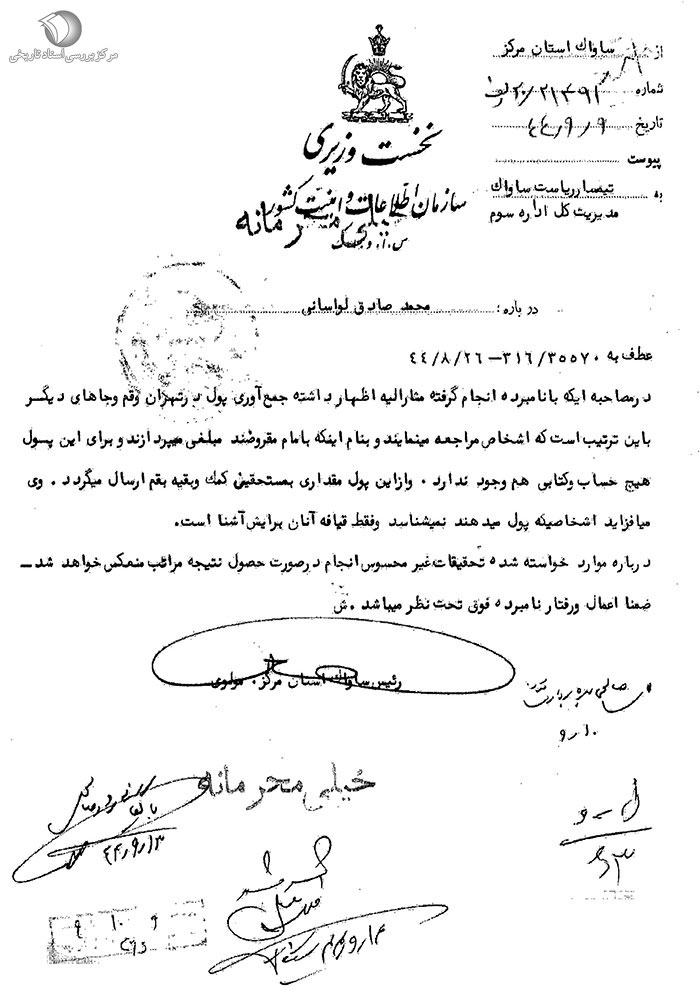 مرکز بررسی اسناد تاریخی
از ساواك استان مرکز
شماره ۲۱۳۹۱/۲۰
تاریخ ۴۴/۹/۹
پیوست
به تیمسار ریاست ساواك
مدیریت کل اداره سوم
نخست وزیری
سازمان اطلاعات و امنیت کشور
س.ا.و.ا.ک
خیلی محرمانه
درباره: محمد صادق لواسانی
عطف به ۳۵۵۷۰/۳۱۶-۴۴/۸/۲۶
در مصاحبه ایکه با نامبرده انجام گرفته مشارالیه اظهار داشته جمع‌آوری پول در تهران و قم و جاهای دیگر
باین ترتیب است که اشخاص مراجعه مینمایند و بنام اینکه بامام مقروضند مبلغی میپردازند و برای این پول
هیچ حساب وکتابی هم وجود ندارد. وازاین پول مقداری بمستحقین کمك وبقیه بقم ارسال میگردد. وی
میافزاید اشخاصیکه پول میدهند نمیشناسد وفقط قیافه آنان برایش آشنا است.
درباره موارد خواسته شده تحقیقات غیر محسوس انجام درصورت حصول نتیجه مراتب منعکس خواهد شد-
ضمنا اعمال ورفتار نامبرده فوق تحت نظر میباشد. ش
رئیس ساواك استان مرکز. مولوی
۱۰ر۹
خیلی محرمانه
۴۴ر۹ر۱۳
۹ ۱۰ ۹